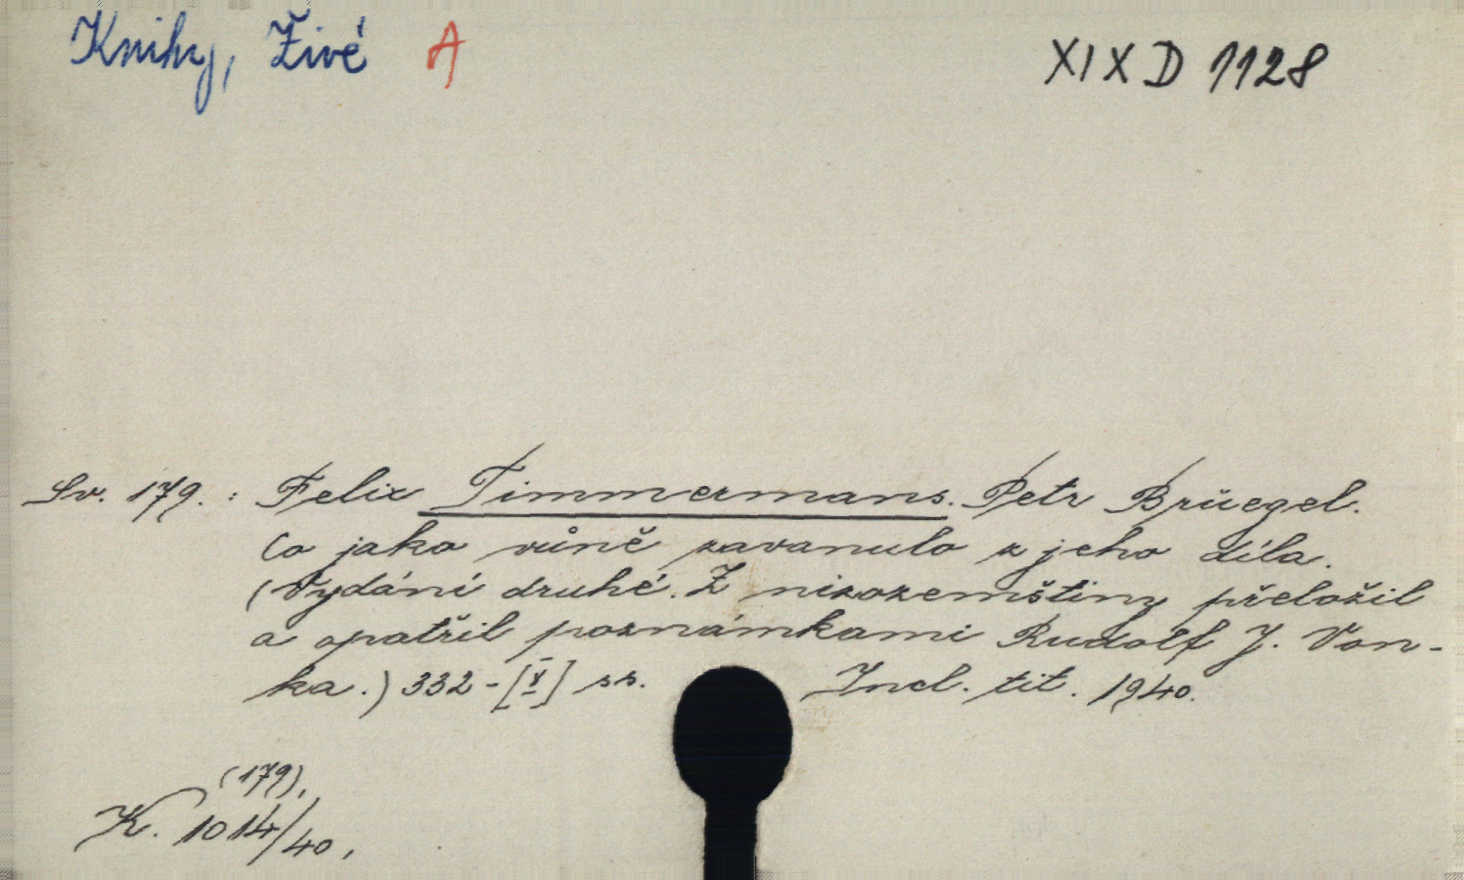 Knihy, Živé A
XIX D 1128
Sv. 179. : Felix Timmermans. Petr Brüegel.
Co jako vůně zavanulo z jeho díla.
(Vydání druhé. Z nizozemštiny přeložil
a opatřil poznámkami Rudolf J. Von-
ka.) 332-[V] ss. Incl. tit. 1940.
(179),
K. 1014/40,